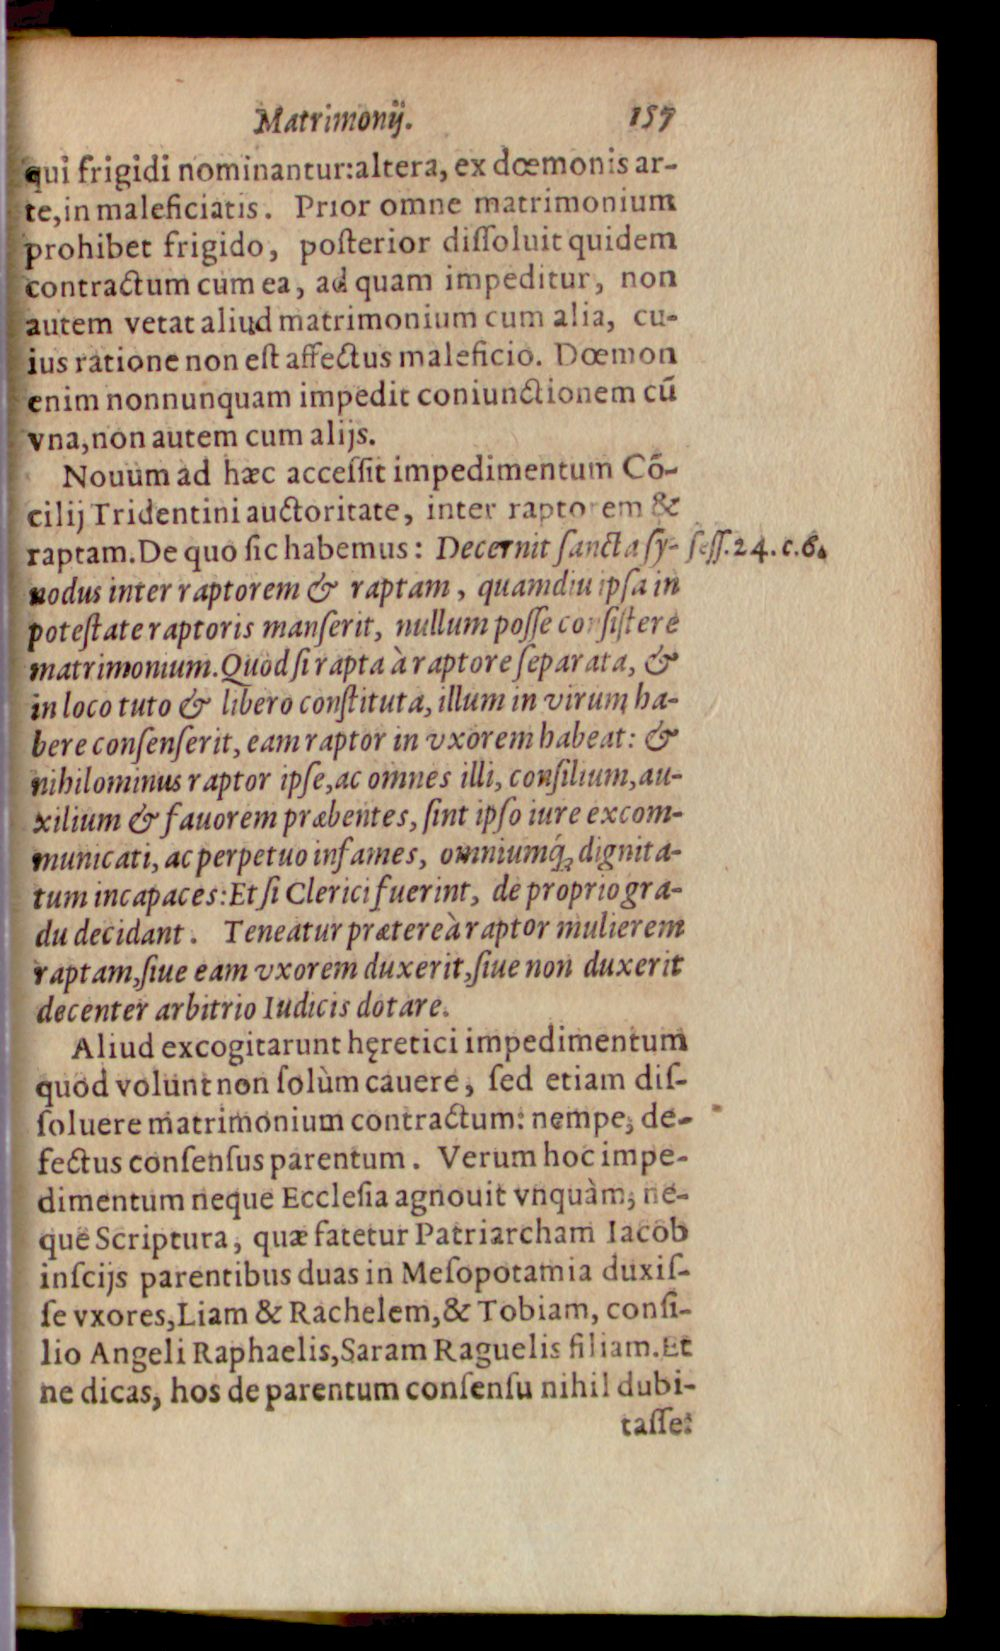 Matrimonij. 157
qui frigidi nominantur:altera, ex dœmonis ar-
te,in maleficiatis. Prior omne matrimonium
prohibet frigido, poſterior diſſoluit quidem
contractum cum ea, ad quam impeditur, non
autem vetat aliud matrimonium cum alia, cu-
ius ratione non eſt affectus maleficio. Dœmon
enim nonnunquam impedit coniunctionem cū
vna,non autem cum alijs.
Nouum ad hæc acceſſit impedimentum Cō-
cilij Tridentini auctoritate, inter raptorem &
raptam. De quo ſic habemus: Decernit ſancta ſy- ſeſſ.24.c.6.
nodus inter raptorem & raptam, quamdiu ipſa in
poteſtate raptoris manſerit, nullum poſſe conſiſtere
matrimonium. Quòd ſi rapta à raptore ſeparata, &
in loco tuto & libero conſtituta, illum in virum ha-
bere conſenſerit, eam raptor in vxorem habeat: &
nihilominus raptor ipſe, ac omnes illi, conſilium, au-
xilium & fauorem præbentes, ſint ipſo iure excom-
municati, ac perpetuo infames, omniumq́; dignita-
tum incapaces: Et ſi Clerici fuerint, de proprio gra-
du decidant. Teneatur prætereà raptor mulierem
raptam, ſiue eam vxorem duxerit, ſiue non duxerit
decenter arbitrio Iudicis dotare.
Aliud excogitarunt hęretici impedimentum
quod volunt non ſolùm cauere, ſed etiam diſ-
ſoluere matrimonium contractum: nempe, de-
fectus conſenſus parentum. Verum hoc impe-
dimentum neque Eccleſia agnouit vnquàm, ne-
que Scriptura, quæ fatetur Patriarcham Iacob
inſcijs parentibus duas in Meſopotamia duxiſ-
ſe vxores, Liam & Rachelem, & Tobiam, conſi-
lio Angeli Raphaelis, Saram Raguelis filiam. Et
ne dicas, hos de parentum conſenſu nihil dubi-
taſſe: